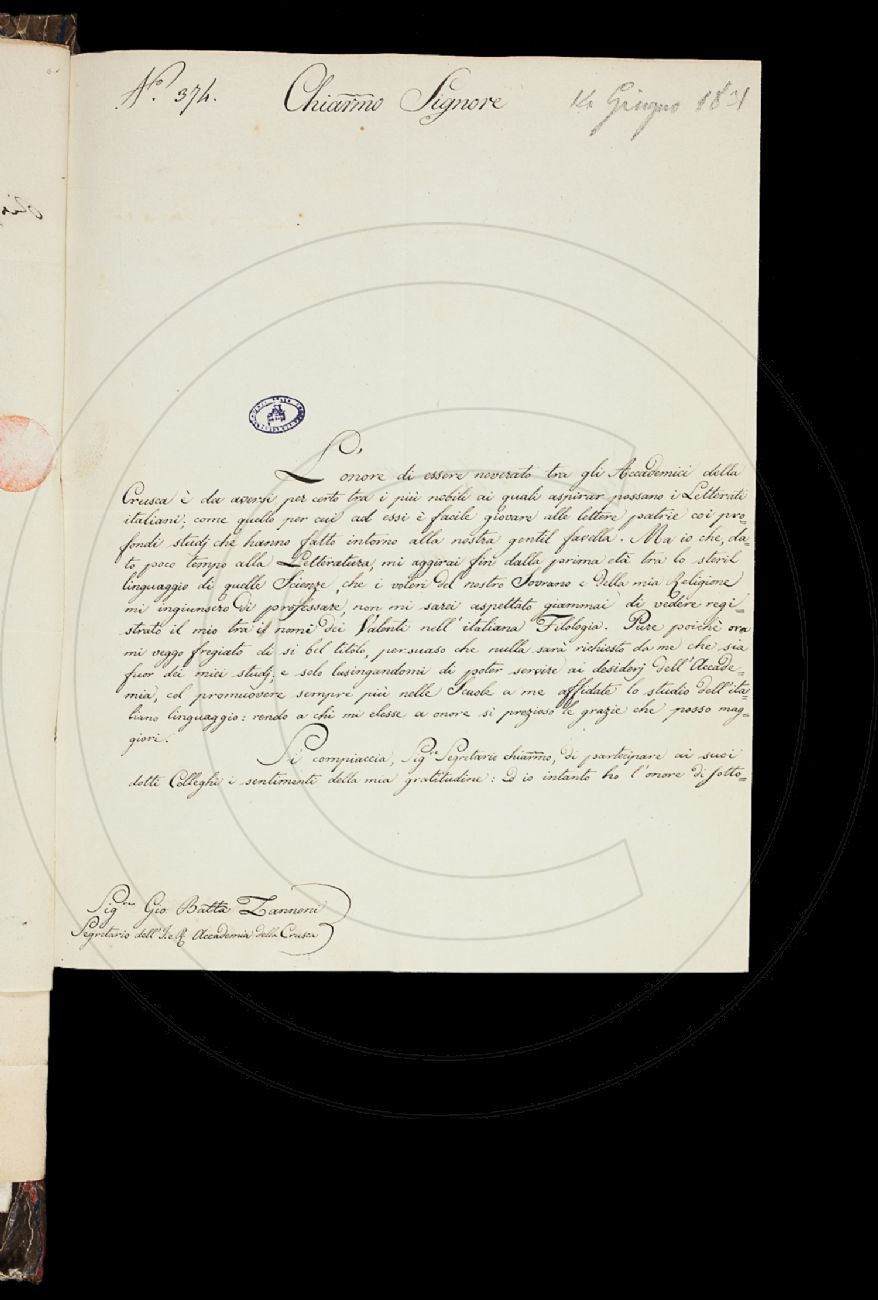 N.º 374. Chiar̃mo Signore 14 Giugno 1831
L'onore di essere noverato tra gli Accademici della
Crusca è da aversi per certo tra i più nobili ai quali aspirar possano i Letterati
italiani, come quello per cui ad essi è facile giovare alle lettere patrie coi pro=
fondi studj che hanno fatto intorno alla nostra gentil favella. Ma io che, da=
to poco tempo alla Letteratura, mi aggirai fin dalla prima età tra lo steril
linguaggio di quelle Scienze, che i voleri del nostro Sovrano e della mia Religione
mi ingiunsero di professare, non mi sarei aspettato giammai di vedere regi=
strato il mio tra i nomi dei Valenti nell'italiana Filologia. Pure poichè ora
mi veggo fregiato di sì bel titolo, persuaso che nulla sarà richiesto da me che sia
fuor dei miei studj, e solo lusingandomi di poter servire ai desiderj dell'Accade=
mia, col promuovere sempre più nelle Scuole a me affidate lo studio dell'ita=
liano linguaggio: rendo a chi mi elesse a onore sì prezioso le grazie che posso mag=
giori.
Si compiaccia, Sig.re Segretario chiar̃mo, di partecipare ai suoi
dotti Colleghi i sentimenti della mia gratitudine: ed io intanto ho l'onore di sotto=
Sig.re Gio. Batta Zannoni
Segretario dell'I. e R. Accademia della Crusca